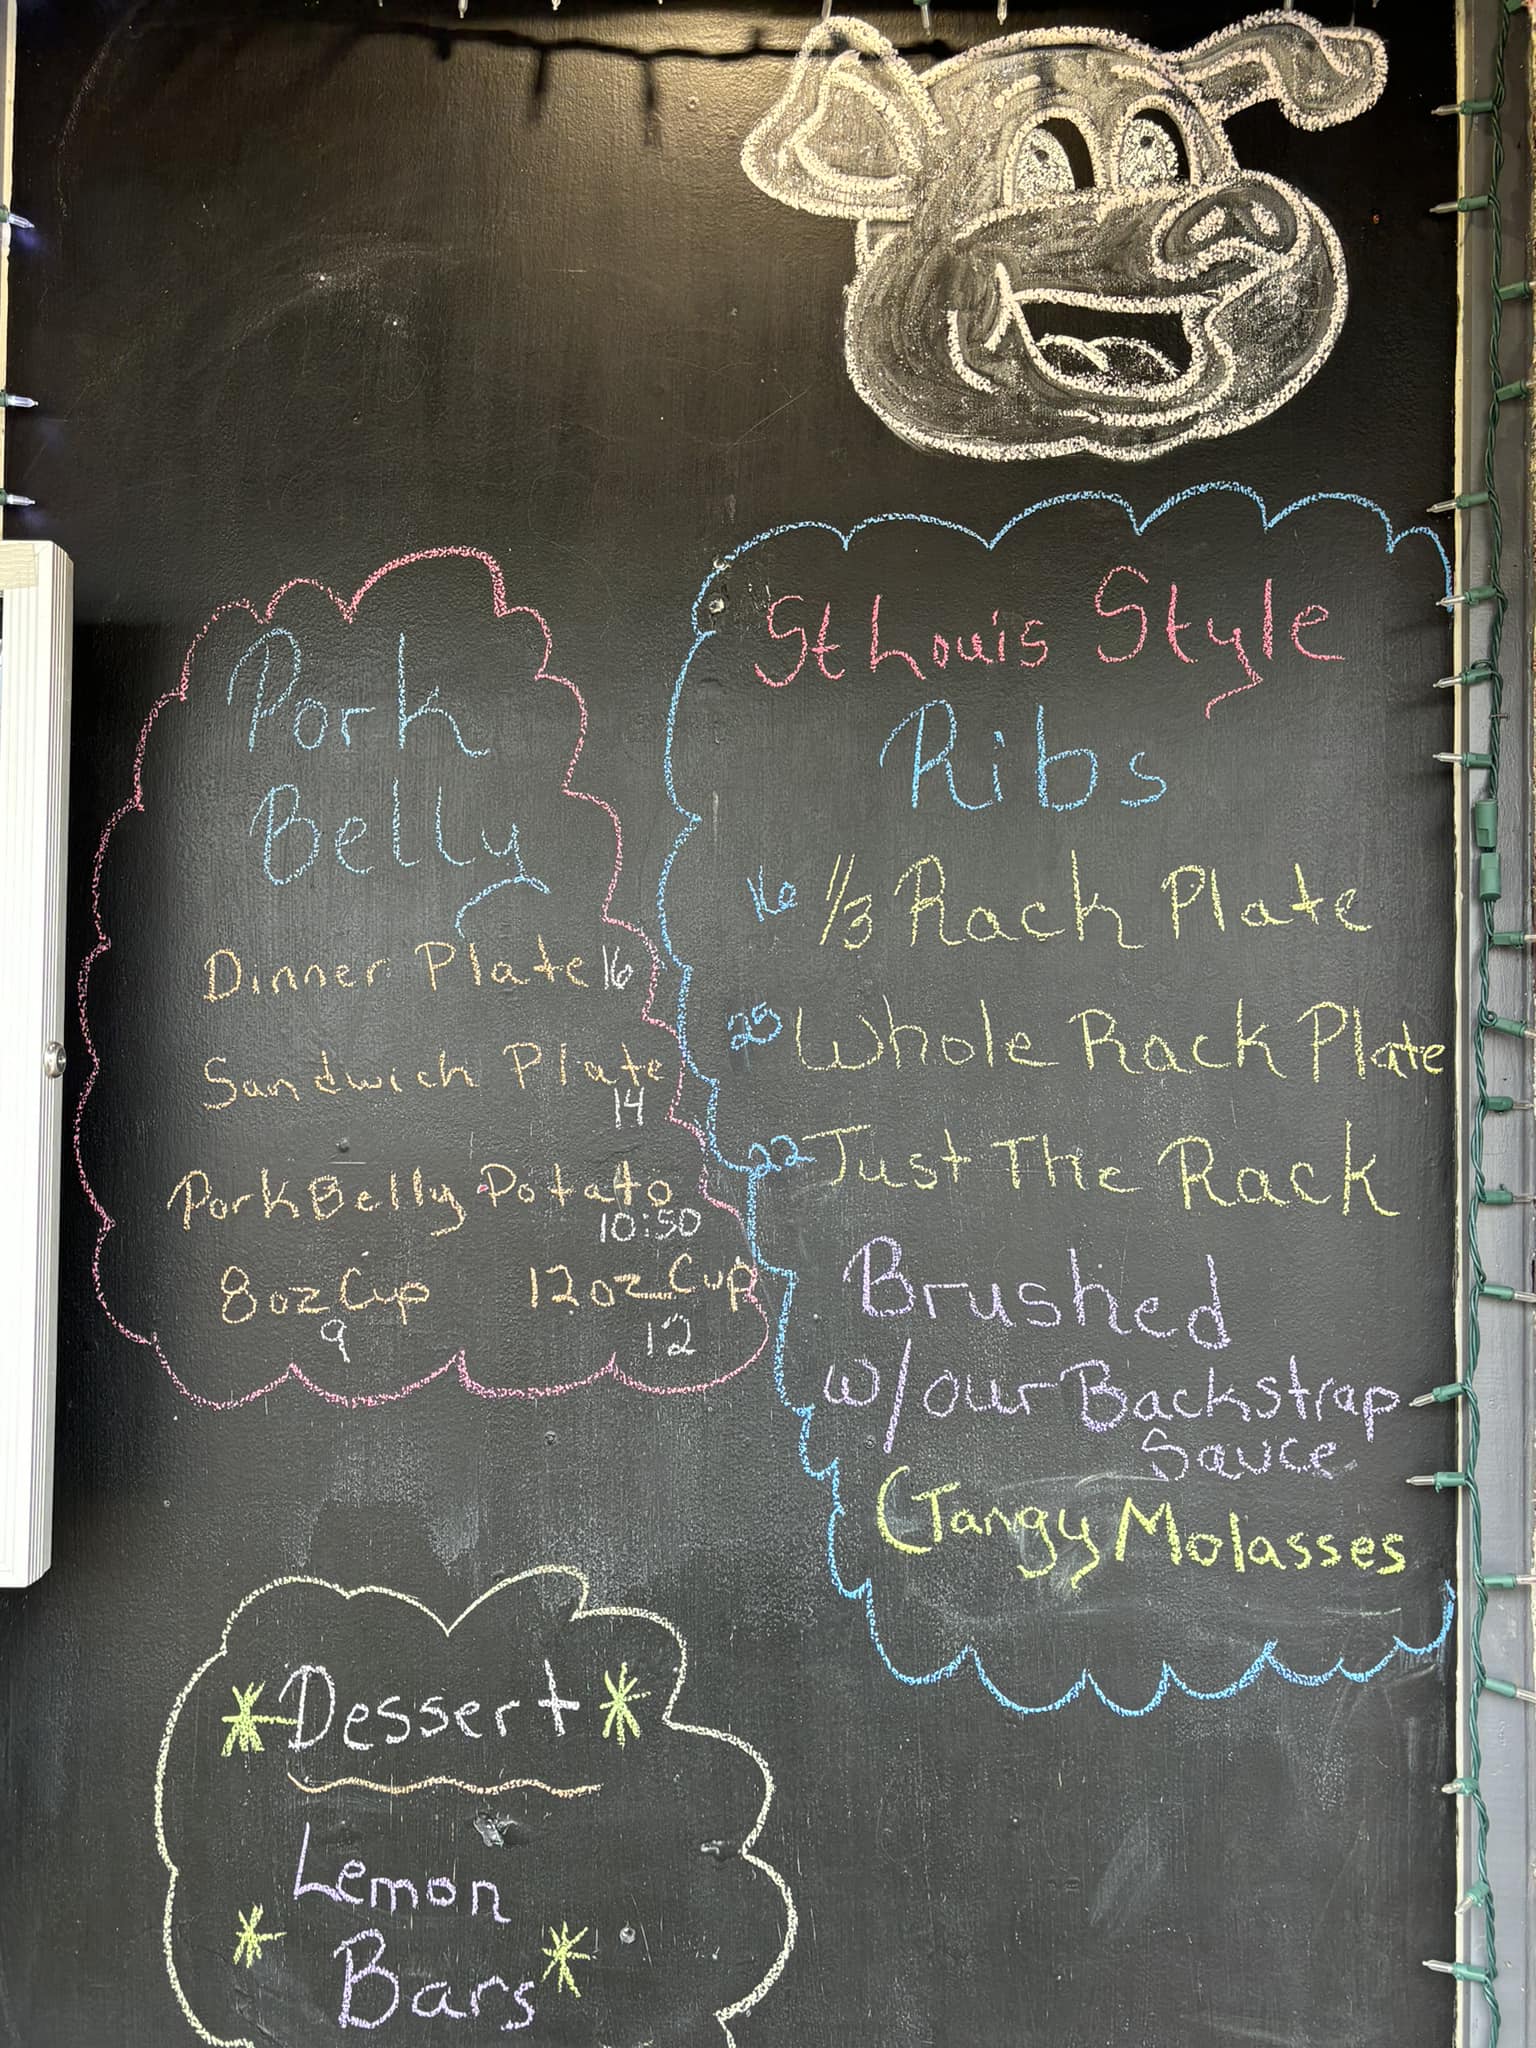 Pork
Belly
Dinner Plate 16
Sandwich Plate
14
Pork Belly Potato
10:50
8oz Cup 12oz Cup
9 12
St Louis Style
Ribs
16 1/3 Rack Plate
25 Whole Rack Plate
22 Just The Rack
Brushed
w/our Backstrap
Sauce
(Tangy Molasses
*Dessert*
Lemon
* Bars*